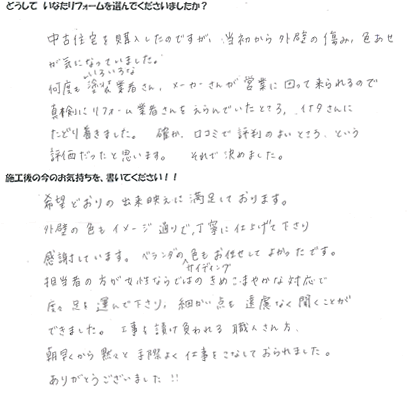 どうして いなたリフォームを選んでくださいましたか？
中古住宅を購入したのですが、当初から外壁の傷み、色あせ
が気になっていました。
いろいろな
何度も塗装業者さん、メーカーさんが営業に回って来られるので
真剣にリフォーム業者さんをえらんでいたところ、イナタさんに
たどり着きました。 確か、口コミで評判のよいところ、という
評価だったと思います。 それで決めました。
施工後の今のお気持ちを、書いてください！！
希望どおりの出来映えに満足しております。
外壁の色もイメージ通りで、丁寧に仕上げて下さり
感謝しています。 ベランダの色もお任せしてよかったです。
サイディング
担当者の方が女性ならではのきめこまやかな対応で
度々足を運んで下さり、細かい点も遠慮なく聞くことが
できました。 工事を請け負われる職人さん方、
朝早くから黙々と手際よく仕事をこなしておられました。
ありがとうございました!!